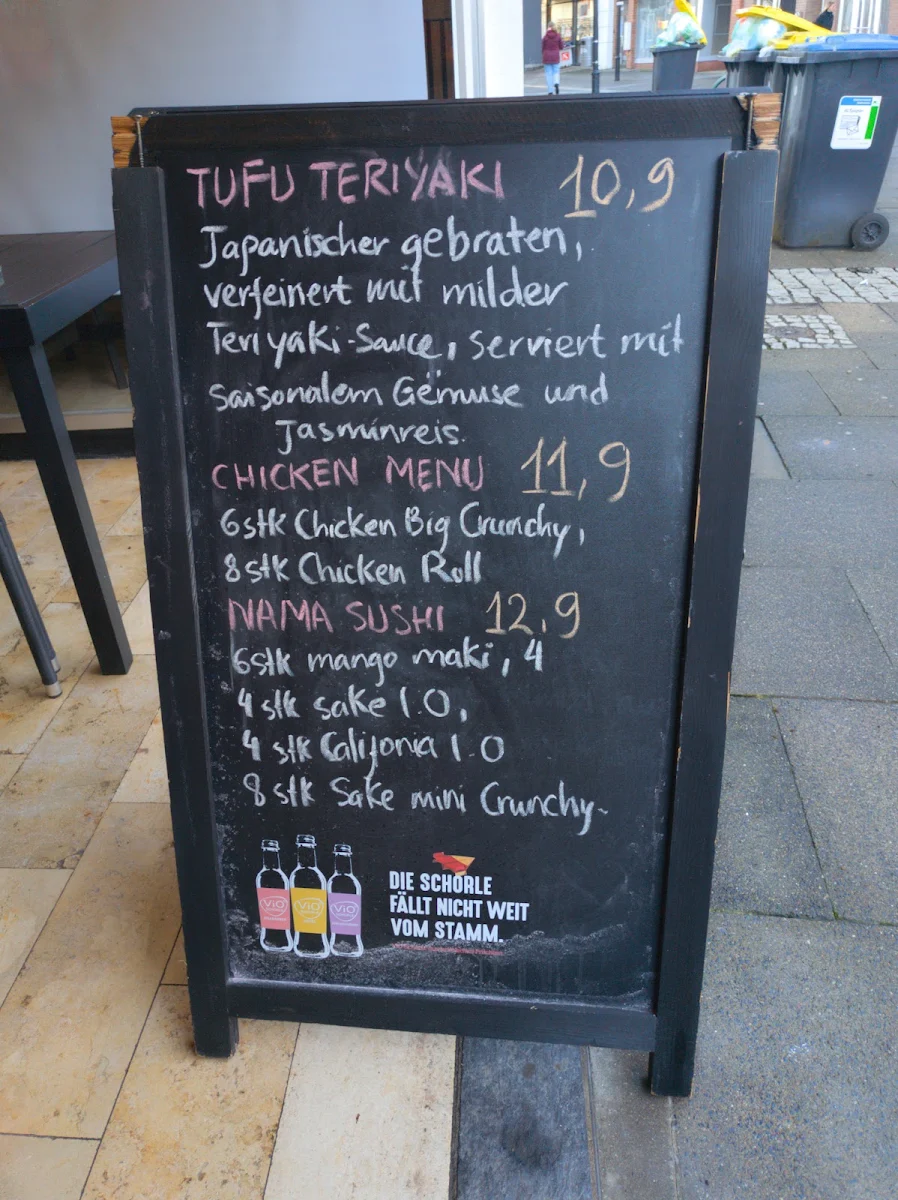 TUFU TERIYAKI 10,9
Japanischer gebraten,
verfeinert mit milder
Teriyaki-Sauce, serviert mit
saisonalem Gemüse und
Jasminreis.
CHICKEN MENU 11,9
6stk Chicken Big Crunchy,
8stk Chicken Roll
NAMA SUSHI 12,9
6stk mango maki, 4
4 stk sake 1.0,
4 stk Califonia 1.0
8 stk Sake mini Crunchy.
ViO ViO ViO
DIE SCHORLE
FÄLLT NICHT WEIT
VOM STAMM.